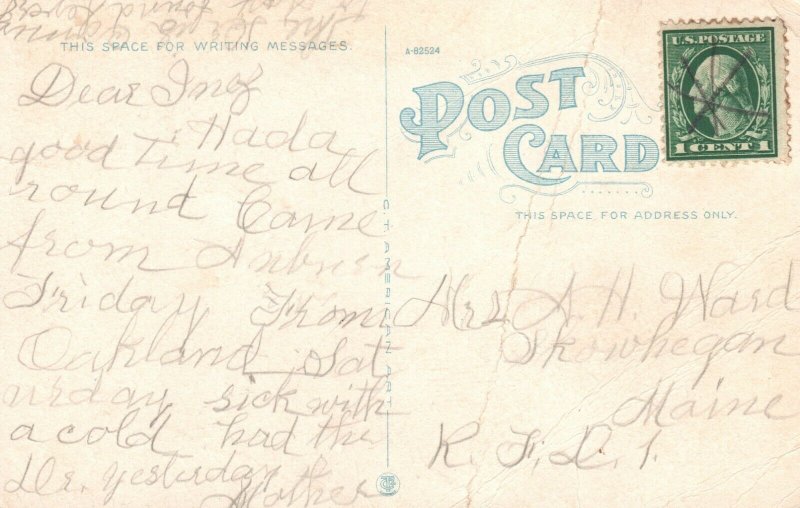 THIS SPACE FOR WRITING MESSAGES.
Dear Inez
Had a
good time all
round Came
from Auburn
Friday From
Oakland Sat
urday sick with
a cold had the
Dr. yesterday
Mother
C.T. AMERICAN ART
A-82524
POST
CARD
THIS SPACE FOR ADDRESS ONLY.
U.S. POSTAGE
1 CENT 1
Mrs A. H. Ward
Skowhegan
Maine
R. F. D. 1.